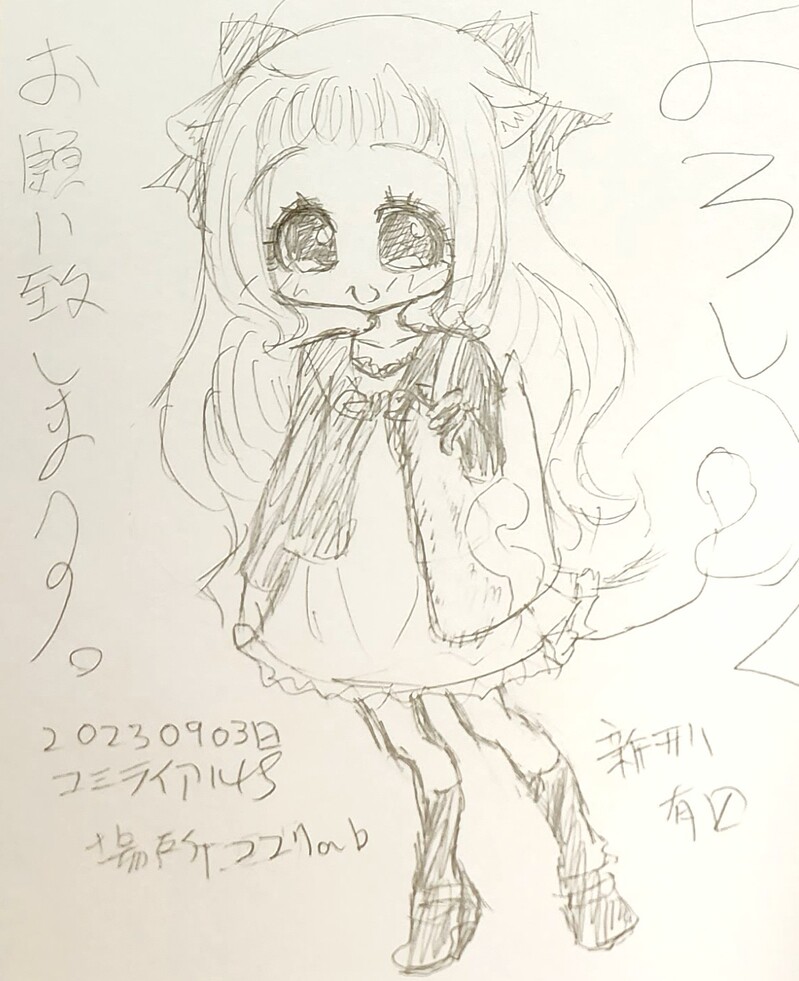 よろしく
お願い致します。
20230903日
コミティア145
場所 ココlab
新刊
有⼝